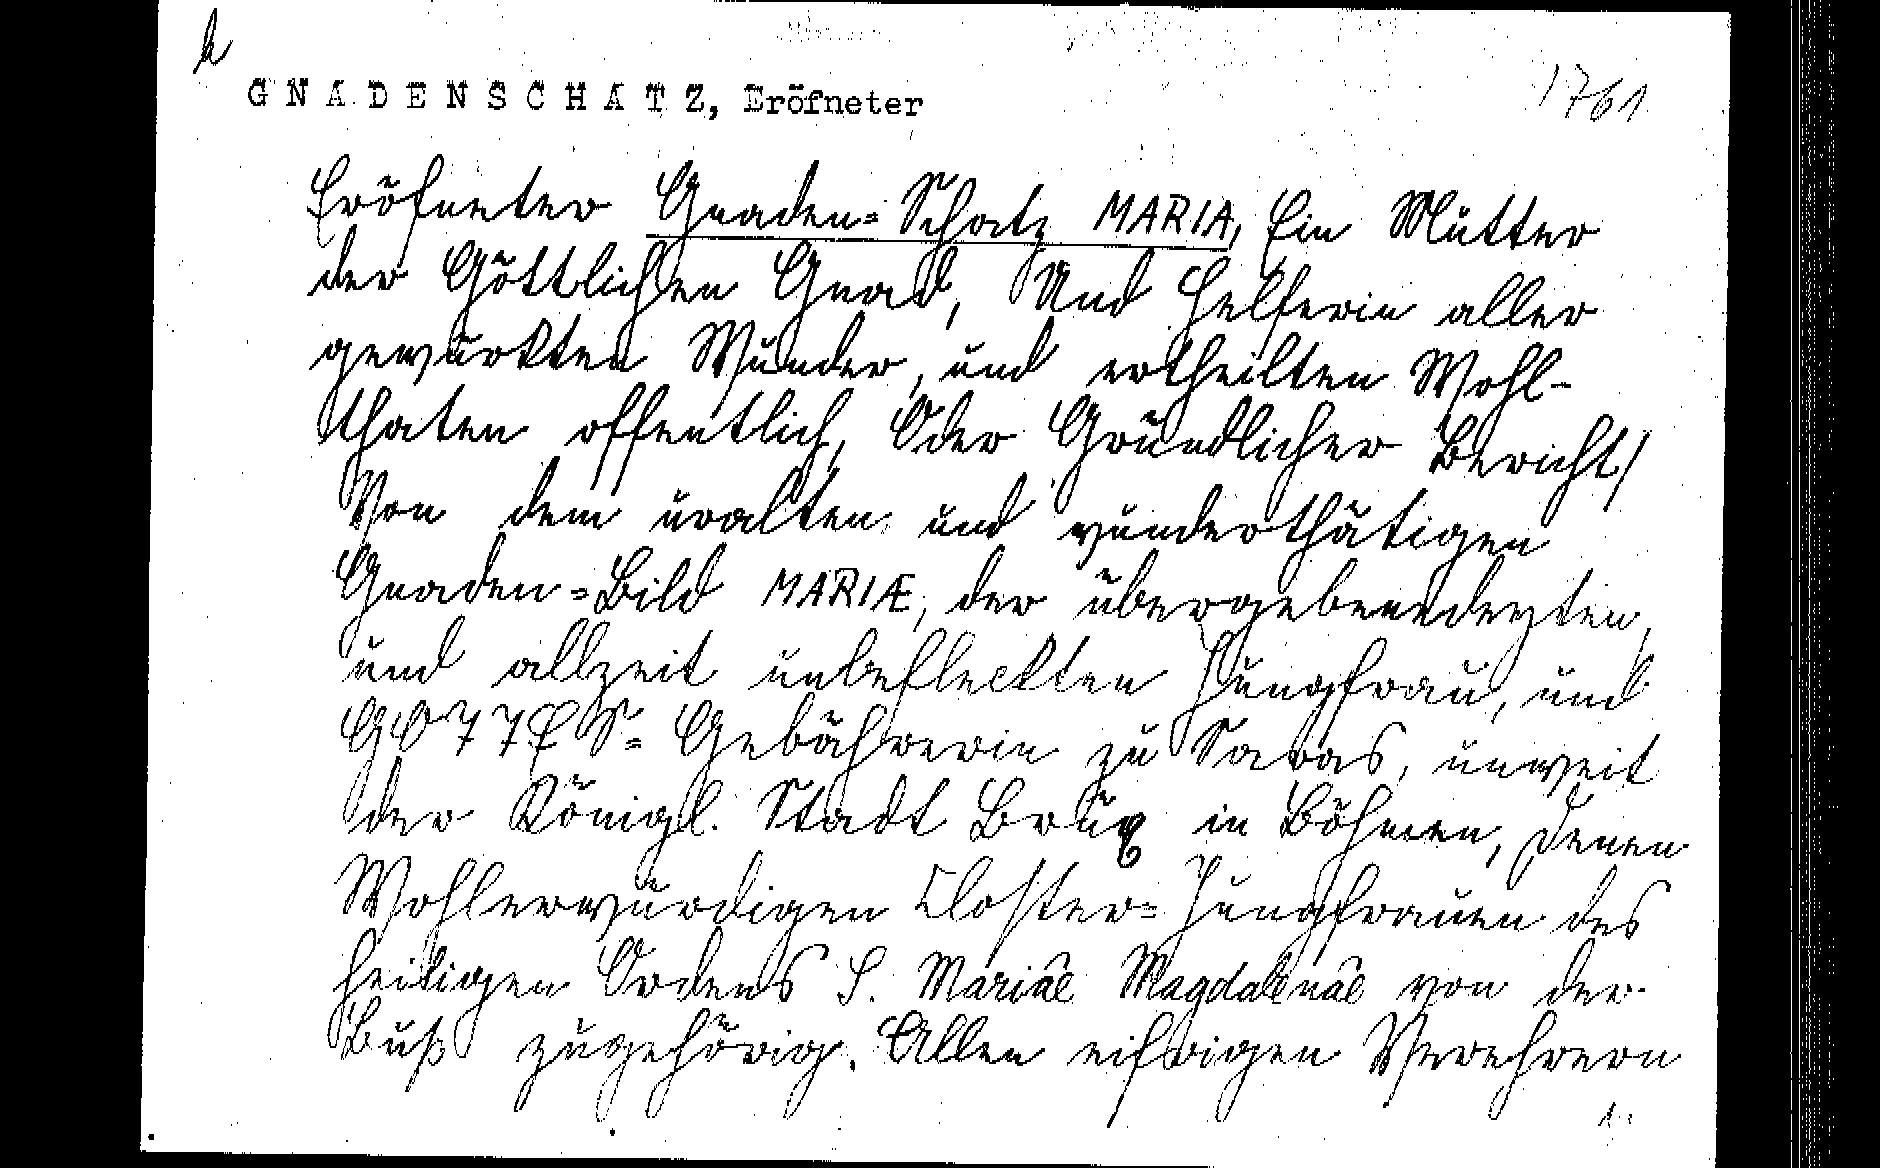 k
GNADENSCHATZ, Eröfneter
1761
Eröfneter Gnaden=Schatz MARIA, Ein Mutter
der Göttlichen Gnad, Und Helferin aller
gewürkten Wunder, und ertheilten Wohl-
thaten offentlich, Oder Gründlicher Bericht/
Von dem uralten und wunderthätigen
Gnaden=Bild MARIÆ, der übergebenedeyten,
und allzeit unbefleckten Jungfrau, und
GOTTES=Gebährerin zu Saras, unweit
der Königl. Stadt Brüx in Böhmen, denen
Wohlerwürdigen Closter=Jungfrauen des
heiligen Ordens S. Mariae Magdalenae von der
Buß zugehörig. Allen eifrigen Verehrern
1.